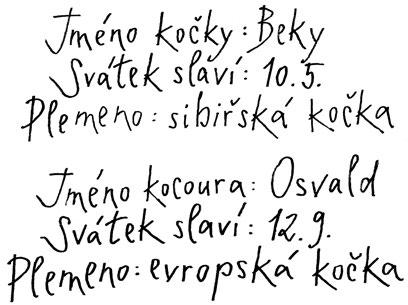 Jméno kočky: Beky
Svátek slaví: 10.5.
Plemeno: sibiřská kočka
Jméno kocoura: Osvald
Svátek slaví: 12.9.
Plemeno: evropská kočka